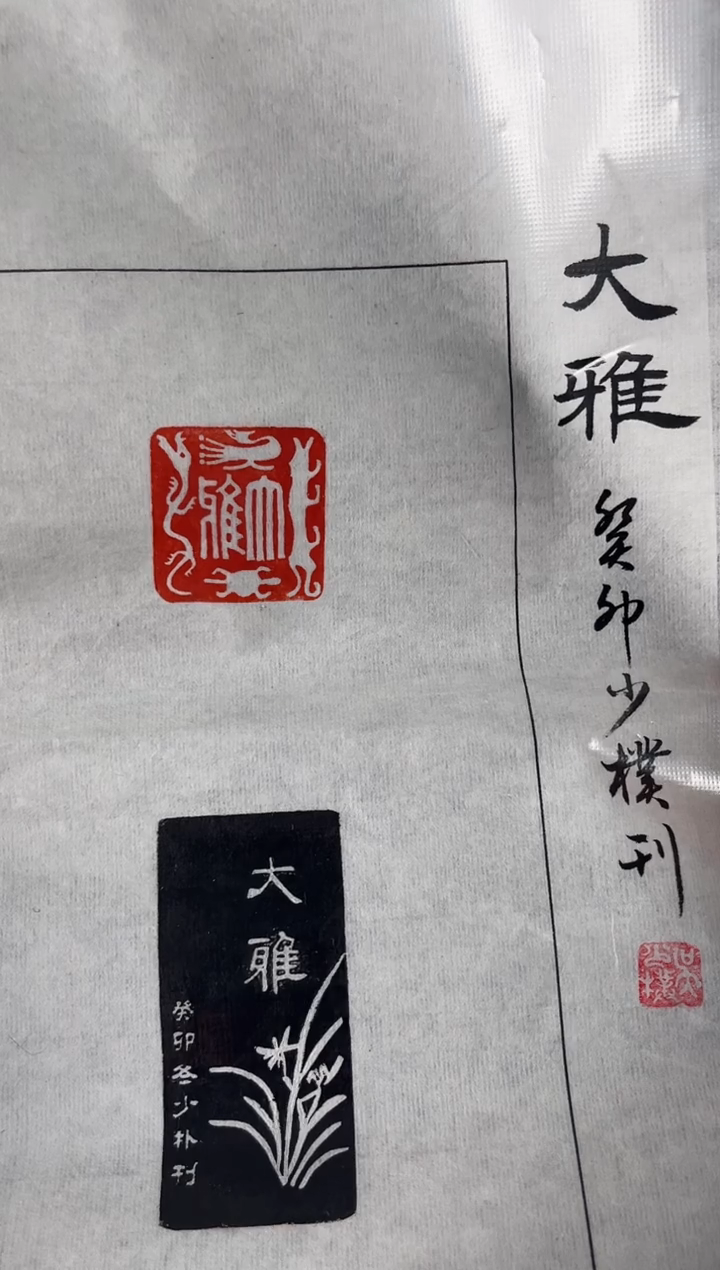 大雅
癸卯少樸刊
大雅
大雅
癸卯冬少朴刊